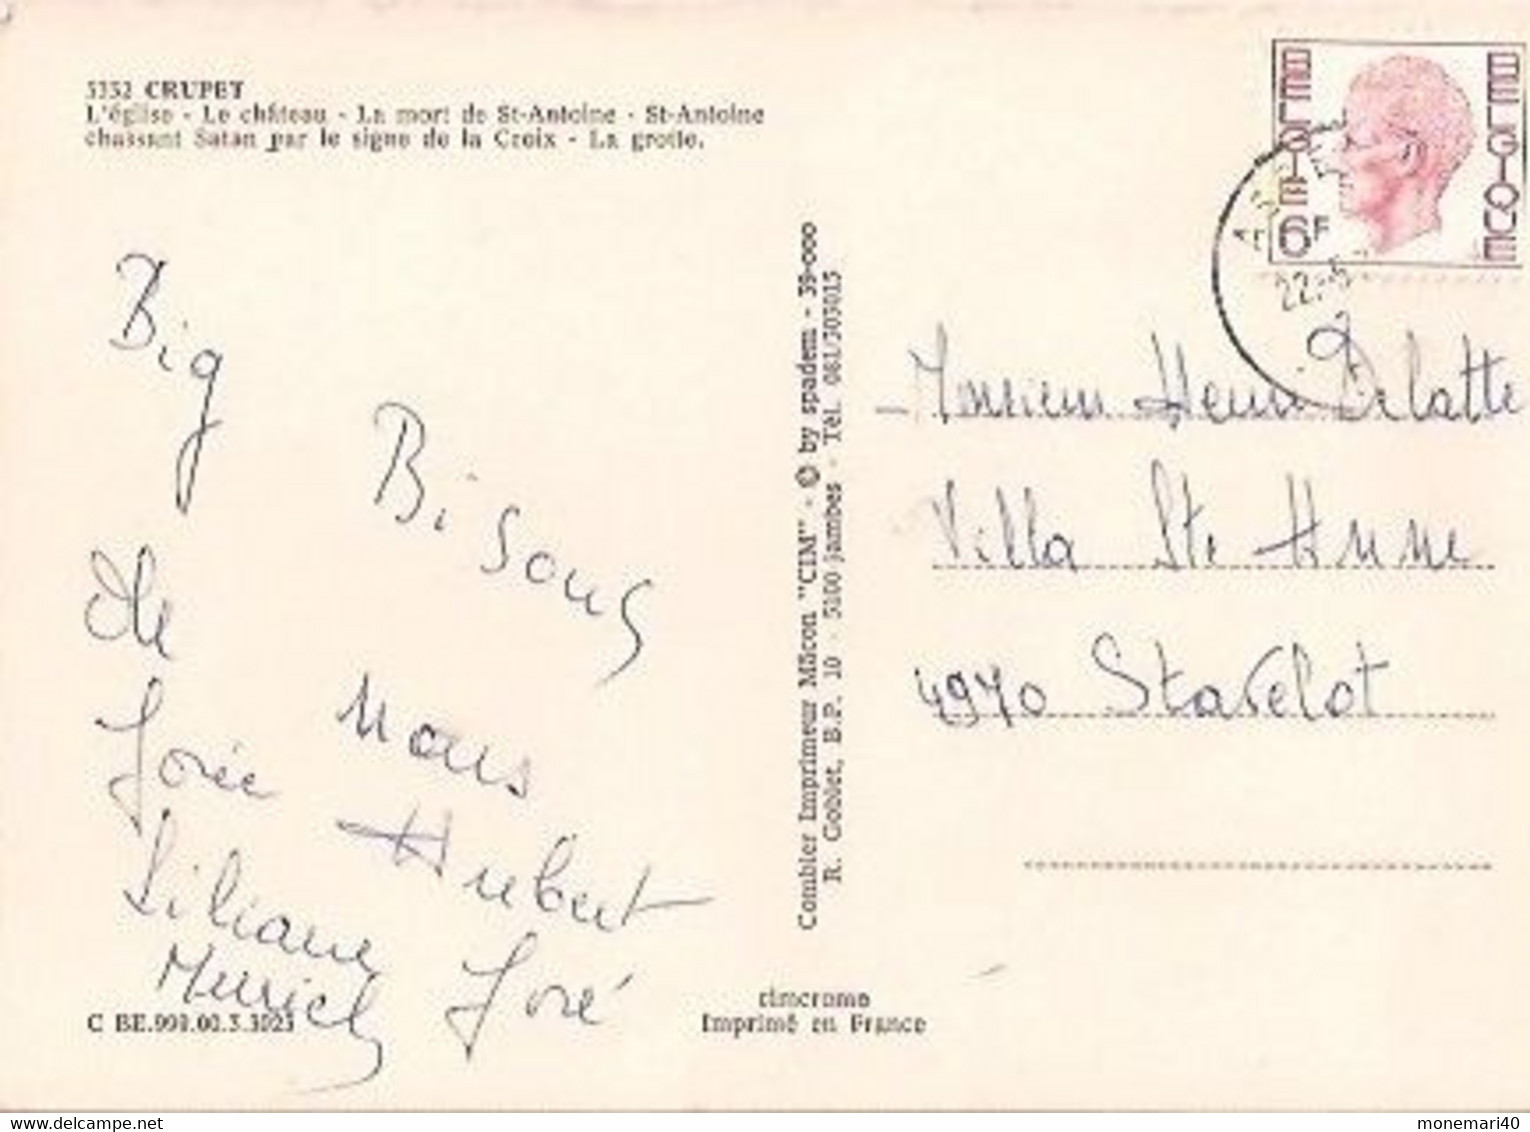 5352 CRUPET
L'église - Le château - La mort de St-Antoine - St-Antoine
chassant Satan par le signe de la Croix - La grotte.
BELGIE
BELGIQUE
6F
22.-5
Big
Bisous
de
nous
Josée
Hubert
Liliane
José
Muriel
Combier Imprimeur Mâcon "CIM" - © by spadem - 39-000
R. Goblet, B.P. 10 - 5100 Jambes - Tél. 081/303015
Monsieur Henri Delatte
Villa Ste Anne
4970 Stavelot
C BE.999.00.3.3023
cimcrome
Imprimé en France
monemari40